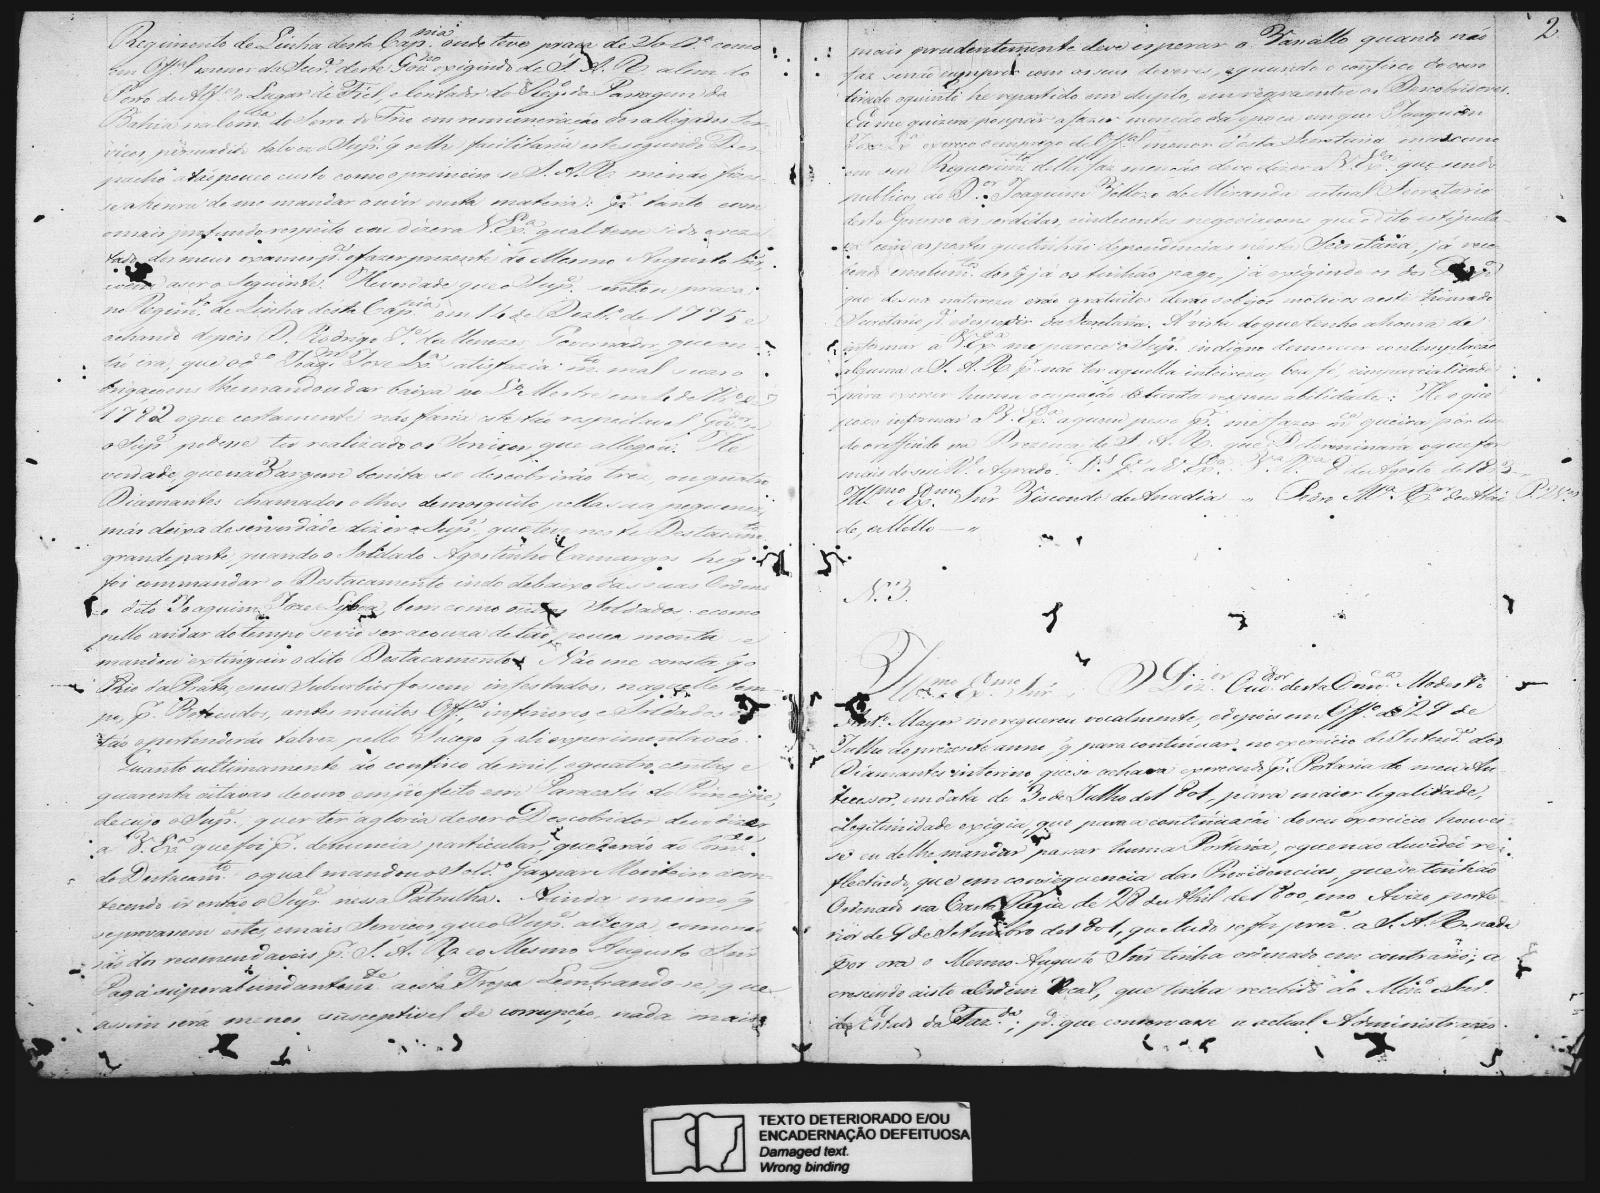 Regimento de Linha desta Cap.nia onde teve praça de Sold.o como
em Off.al menor da Secr.a deste Gov.no exigindo de S. A. R. alem do
Posto de Alf.es o Lugar de Fiel e Contador do Reg.o da Passagem da
Bahia na Com.ca do Serro do Frio em remuneração dos allegados Ser-
viços, persuadido talvez o Sup.e q̃ se lhe facilitaria este segundo Des-
pacho a tão pouco custo como o primeiro se S. A. R. me não fizes-
se a honra de me mandar ouvir nesta materia: P.r tanto com
o mais profundo respeito vou dizer a V. Ex.a qual tem sido o rezul-
tado dos meus exames p.a o fazer prezente ao Mesmo Augusto Snr,
vem a ser o seguinte. He verdade que o Sup.e sentou praça
no Regim.to de Linha desta Cap.nia em 14 de Dezb.o de 1775 e
achando depois D. Rodrigo J.e de Menezes Governador, que en-
tão era, que o d.o Joaq.m Joze S.a satisfazia m.to mal suas o-
brigaçoens lhe mandou dar baixa
1782 o que certamente não faria este tão respeitavel G.dor
o Sup.e podesse ter realizado os Serviços, que allegou. He
verdade, que na Vargem bonita se descobrirão tres, ou quatro
Diamantes chamados olhos de mosquito pella sua pequenez,
mas deixa de ser verdade dizer o Sup.e, que teve neste Destacam.to
grande parte, quando o Soldado Agostinho Camargos he q̃
foi commandar o Destacamento indo debaixo das suas Ordens
o dito Joaquim Joze Sylva, bem como outros Soldados, e como
pello andar do tempo se vio ser a couza de tão pouca monta se
mandou extinguir o dito Destacamento. Não me consta q̃ o
Rio da Prata, e seus Suburbios fossem infestados, naquelle tem-
po, p.r Botecudos, antes muitos Off.es inferiores e Soldados
tão o pertenderão talvez pello Socego q̃ ali experimentavão
Quanto ultimamente ao confisco de mil, e quatro centas e
quarenta oitavas de ouro em pó feito em Paracatú do Principe,
de cujo o Sup.e quer ter a gloria de ser o Descobridor devo dizer
a V. Ex.a que foi p.r denuncia particular, que derão ao Com.de
do Destacam.to o qual mandou o Sold.o Gaspar Monteiro acon-
tecendo ir então o Sup.e nessa Patrulha. Ainda mesmo q̃
se provassem estes, e mais Serviços, que o Sup.e allega, como
são dos recomendaveis p.r S. A. R. e o Mesmo Augusto Snr
Paga superabundantem.te a esta Tropa Lembrando-se, que
assim será menos susceptivel de corrupção, nada mais
2
mais prudentemente deve esperar o Vassallo quando não
faz senão cumprir com os seus deveres, e quando o confisco do ouro
tirado o quinto he repartido em duplo, em regra entre os Descobridores.
Eu me quizera poupar a fazer menção da epoca em que Joaquim
Joze S.a exerceo o emprego de Off.al menor d'esta Secretaria, mas como
em seu Requerim.to della faz menção devo dizer a V. Ex.a que sendo
publicas do D.or Joaquim Velloso de Miranda actual Secretario
deste Governo as sordidas, e indecentes negociaçoens que o dito estipula-
va com as partes que tinhão dependencias nesta Secretaria, já rece-
bendo emolum.tos dos q̃ já os tinhão pago, já exigindo os dos Desp.os
que de sua natureza erão gratuitos derão sobejos motivos a este honrado
Secretario p.a o despedir da Secretaria. Á vista do que tenho a honra de
informar a V. Ex.a me parece o Sup.e indigno de merecer contemplação
alguma a S. A. R. p.r não ter aquella inteireza, boa fé, e imparcialidade
para exercer huma ocupação de tanta responsabilidade: He o que
posso informar a V. Ex.a a quem peço p.r me fazer m.ce queira por tu-
do o reffirido na Prezença de S. A. R. que Determinará o que for
mais do seu R.l Agrado. D.s G.e a V. Ex.a V.a R.ca 8 de Agosto de 1803
Ill.mo Ex.mo Snr Visconde de Anadia " Pedro M.a X.er de Atai-
de, e Mello "
N.o 3
Ill.mo e Ex.mo Snr O Dez.or Ouv.dor desta Com.ca Modesto
Ant.o Mayer me requereu vocalmente, e depois em Off.o de 29 de
Julho do prezente anno, q̃ para continuar no exercicio de Intend.e dos
Diamantes interino, que se achava exercendo p.r Portaria do meu An-
tecessor, em data de 30 de Julho de 1801, para maior legalidade,
e legitimidade exigia, que para a continuação do seu exercicio houves-
se eu de lhe mandar passar huma Portaria, o que não duvidei re-
flectindo, que em consequencia das Providencias, que se tinhão
Ordenado na Carta Regia de 28 de Abril de 1800, e no Avizo poste-
rior de 9 de Setembro de 1801, que tudo se fez prez.e a S. A. R. nada
por ora o Mesmo Augusto Snr tinha ordenado em contrario; a-
crescendo a isto a Ordem Vocal, que tinha recebido do Min.o e Secr.
do Estado da Faz.da; p.a que conservasse a actual Administração
TEXTO DETERIORADO E/OU
ENCADERNAÇÃO DEFEITUOSA
Damaged text.
Wrong binding